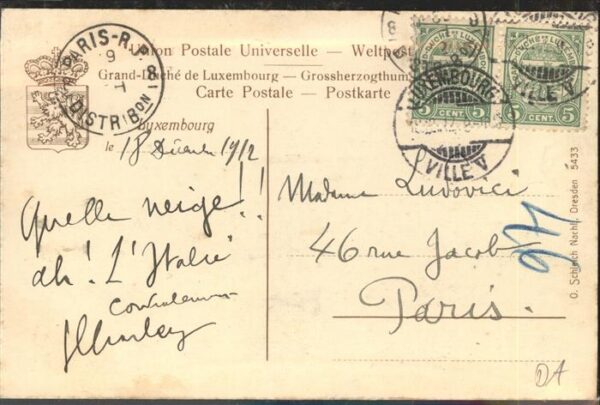 Union Postale Universelle – Weltpost
Grand-Duché de Luxembourg – Grossherzogthum
Carte Postale – Postkarte
Luxembourg
le 18 Décembre 1912
Quelle neige!!
ah! L'Italie
Madame Ludovici
46 rue Jacob
Paris.
PARIS-R.P.
DISTRIBON
LUXEMBOURG
VILLE V
VILLE V
5 CENT. 5
CENT. 5
O. Schleich Nachf., Dresden 5433